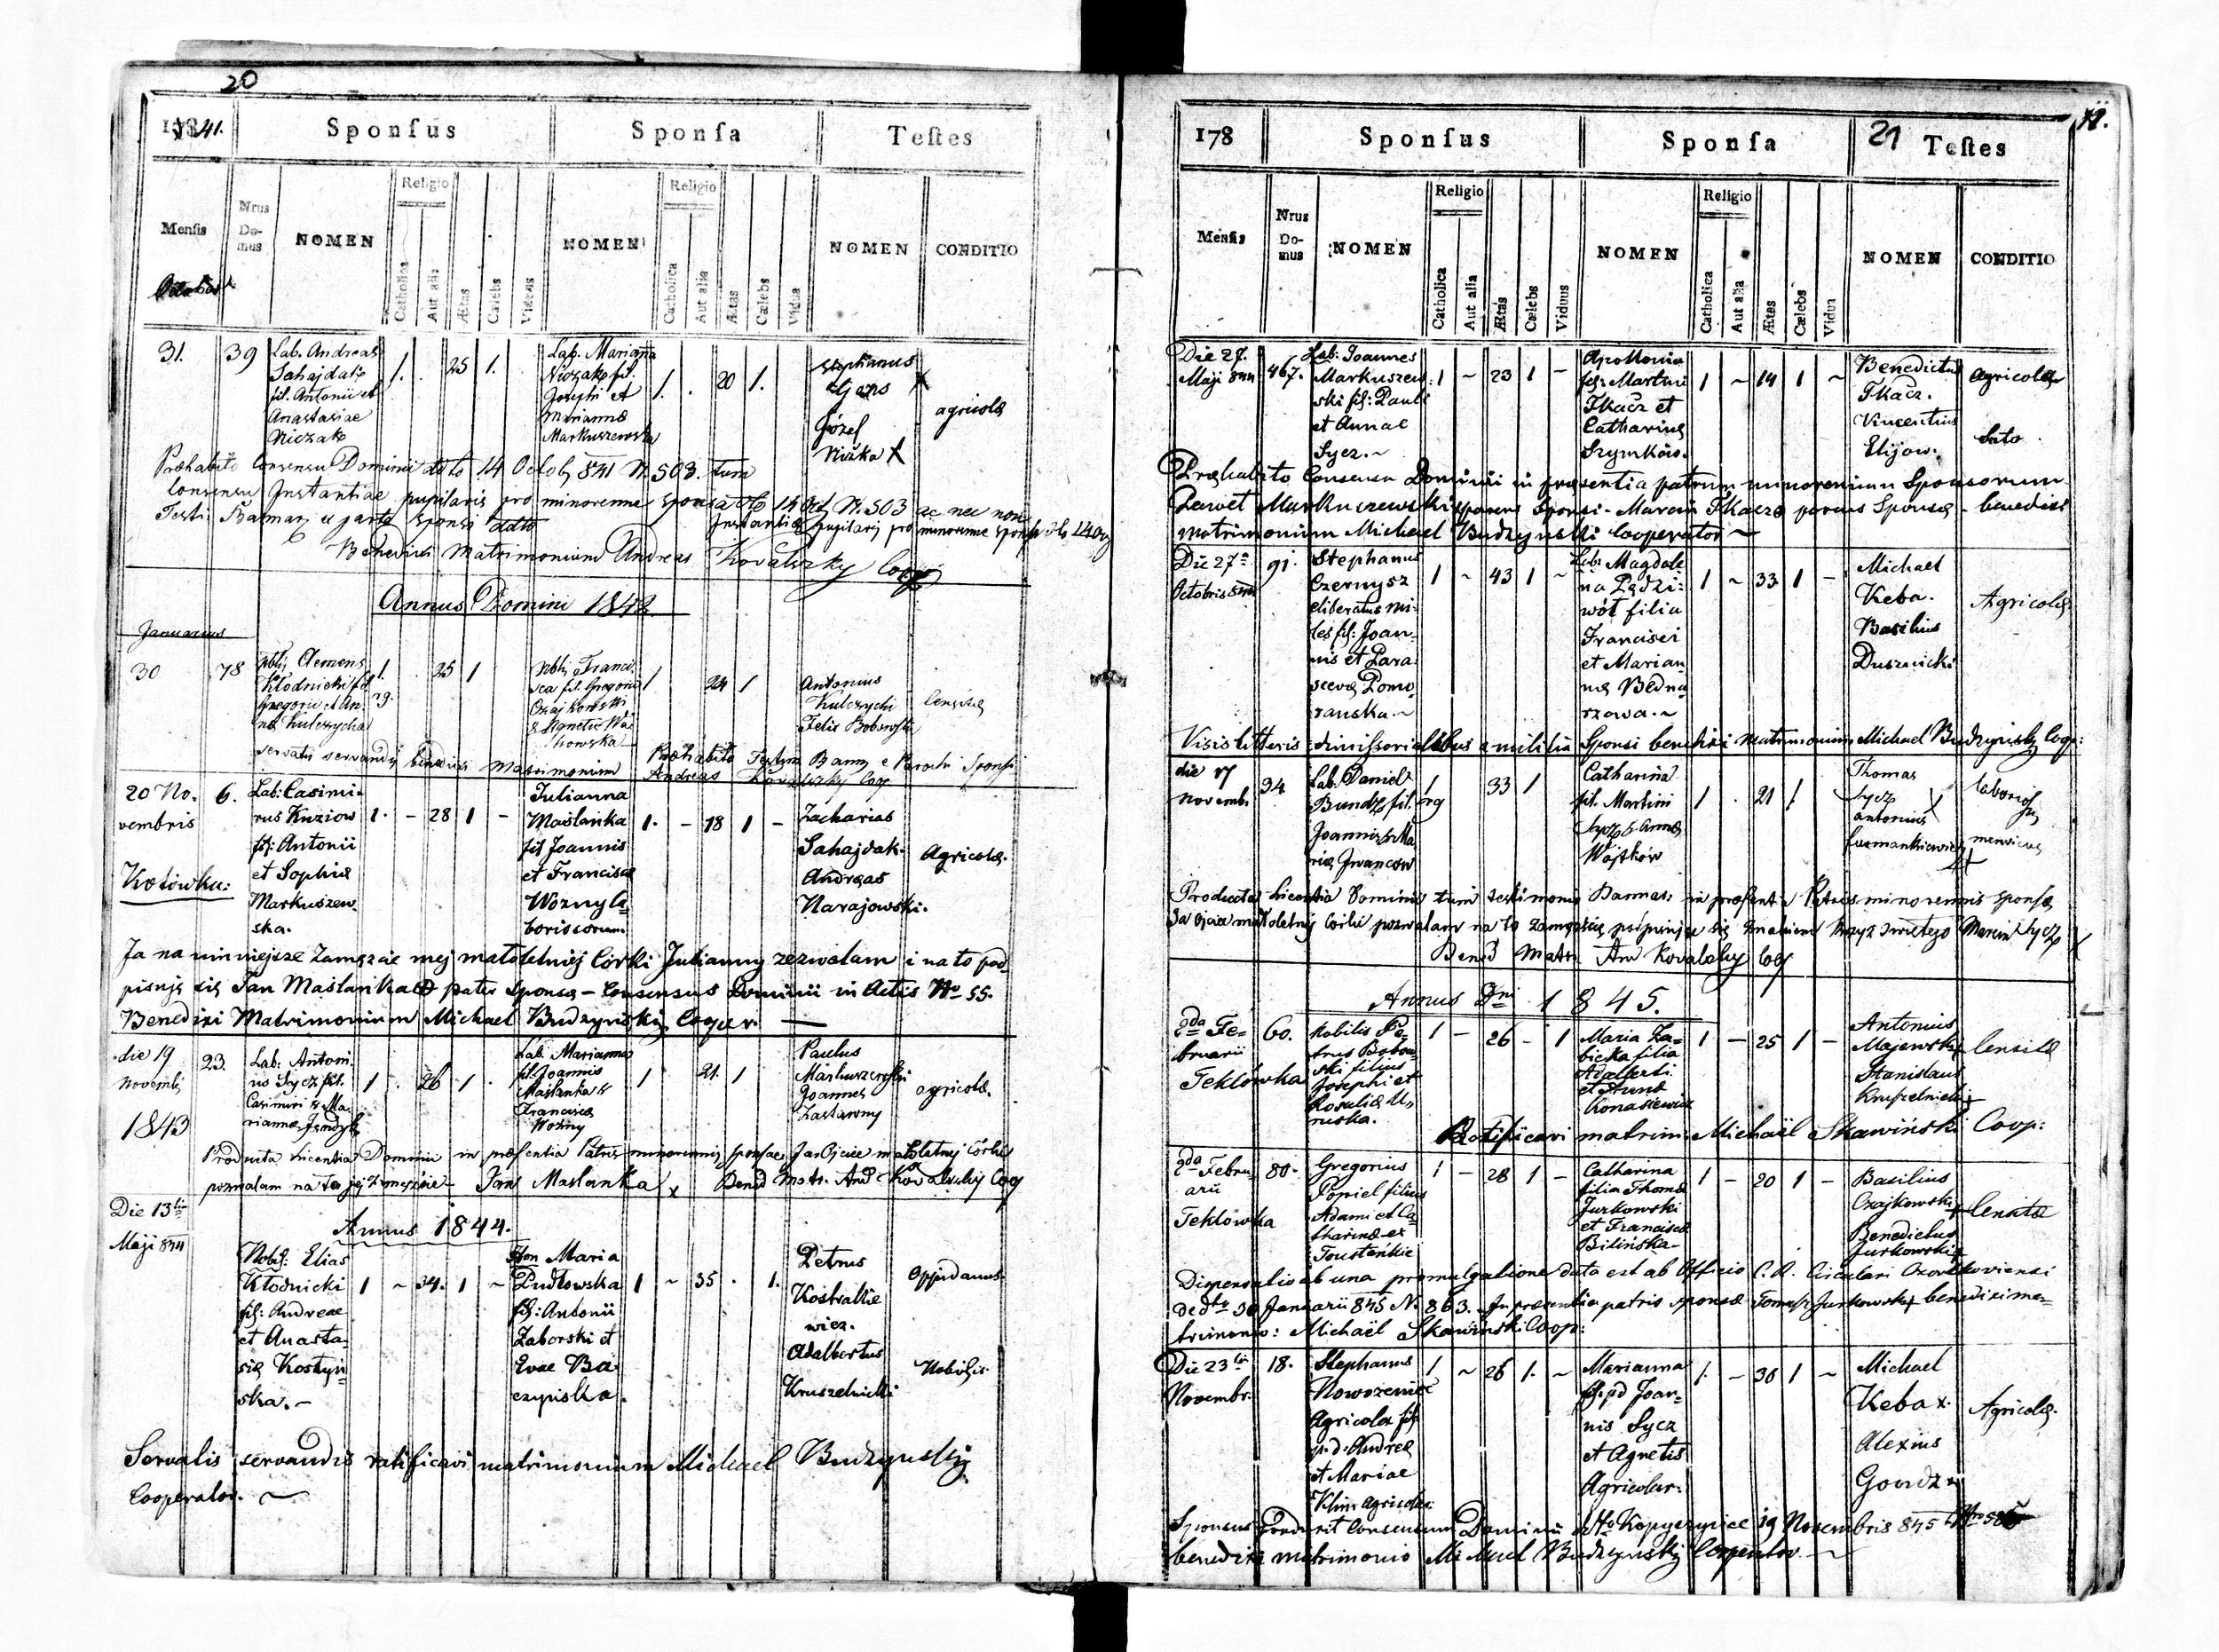 20
1841.
Sponſus
Sponſa
Teſtes
Menſis
Nrus Domus
NOMEN
Religio
Catholica
Aut alia
Ætas
Cælebs
Viduus
NOMEN
Religio
Catholica
Aut alia
Ætas
Cælebs
Vidua
NOMEN
CONDITIO
31. 39
Lab. Andreas
Sahajdak
fil. Antonii et
Anastasiae
Niczak
1. 25 1.
Lab. Marianna
Niczak fil.
Josephi et
Mariannæ
Markuszewska
1. 20 1.
Stephanus
Józef
agricolæ
Præhabito Consensu Dominii ddto 14 Octob 841 N. 503. tum
Consensu Instantiae pupilaris pro minorenne sponsa
Benedixi Matrimonium Andreas Kovalszky Coop
Annus Domini 1842
Januarius
30 78
Clemens
Kłodnicki fil
Gregorii et An
næ Kulczycka
1. rg. 25 1
Franci
sca fil. Gregorii
Czajkowski
& Agnetis
1 24 1
Antonius
Kulczycki
Felix
servatis servandis benedixi Matrimonium
Andreas Coop
20 No-
vembris
6.
Kotówka:
Lab: Casimi-
rus Kuziow
fil: Antonii
et Sophiæ
Markuszew-
ska.
1. - 28 1 -
Julianna
Maślanka
fil Joannis
et Franciscæ
Wozny la-
boriosorum.
1. - 18 1 -
Zacharias
Sahajdak.
Andreas
Narajowski.
Agricolæ.
Ja na ninniejsze Zamęzcie mej małoletniej Córki Julianny zezwalam i na to pod-
pisuję się Jan Maslanka pater Sponsæ - Consensus Dominii in Actis No 55.
Benedixi Matrimonium Michael Budzyński Cooper.
die 19
Novemb
1843
23.
Lab. Antoni
us Sycz fil.
Casimiri & Ma
riannæ
1 . 26 1 .
Lab. Marianna
fil. Joannis
Maślanka &
Franciscæ
Wozny
1 21. 1
Paulus
Markuszewski
Joannes
Zastawny
agricolæ.
Producta Licentia Dominii in præsentia Patris minorennis sponsae, Ja Ojciec małoletnej Córki
pozwalam na to jej Zamęzcie - Jan Maslanka x Bened Matr. And Kovalszky Coop
Annus 1844.
Die 13tia
Maji 844
Nobil: Elias
Kłodnicki
fil: Andreae
et Anasta-
siæ Kostyń-
ska. -
1 ~ 34. 1 ~
Hon Maria
Pudłowska
fil: Antonii
Zaborski et
Evae Ba-
czynska.
1 ~ 35 . 1.
Petrus
Kostrakie
wicz.
Adalbertus
Kruszelnicki
Oppidanus
Nobilis
Servatis servandis ratificavi matrimonium Michael Budzynski
Cooperator. ~
178
Sponſus
Sponſa
21
Teſtes
Menſis
Nrus Domus
NOMEN
Religio
Catholica
Aut alia
Ætas
Cælebs
Viduus
NOMEN
Religio
Catholica
Aut alia
Ætas
Cælebs
Vidua
NOMEN
CONDITIO
Die 27.
Maji 844
467.
Lab: Joannes
Markuszew-
ski fil: Pauli
et Annae
Sycz. ~
1 ~ 23 1 -
Apollonia
fil: Martini
Tkacz et
Catharinæ
Szymków.
1 ~ 19 1 ~
Benedictus
Tkacz.
Vincentius
Elijow.
Agricolæ
Præhabito Consensu Dominii in præsentia patrum minorenium Sponsorum
Paweł Markuszewski parens Sponsi - Marcin Tkacz parens Sponsæ - benedixi
matrimonium Michael Budzynski Cooperator ~
Die 27a
Octobris 844
91.
Stephanus
Czernysz
eliberatus mi-
les fil: Joan-
nis et Para-
scevæ Pomo-
ranska. ~
1 ~ 43 1 ~
Lab: Magdale
na Pędzi-
wót filia
Francisci
et Marian
næ Bedna
rzowa. ~
1 ~ 33 1 -
Michael
Keba.
Basilius
Dusznicki
Agricolæ
Visis litteris dimissorialibus a militia Sponsi benedixi Matrimonium Michael Budzynski Coop:
die 17
Novemb.
34
Lab. Daniel
fil.
Joannis & Ma
riæ Iwancow
1 rg 33 1
Catharina
fil. Martini
Sycz & Annæ
Wójtków
1 . 21 1
Thomas
Sycz
Antonius
Producta Licentia Dominii tum testimonio Bannas: in præsentia Patris minorennis sponsæ
Ja Ojciec małoletnej Córki pozwalam na to Zamęzcie podpisuję się znakiem Krzyz swiętego Marcin Sycz x
Bened Matr. And Kovalszky Coop
Annus Dni 1845.
2da Fe-
bruarii
Teklówka
60.
Nobilis Pe-
trus Bobow-
ski filius
Josephi et
Rosaliæ U-
ruska.
1 - 26 - 1
Maria Za-
bicka filia
Adalberti
et Annæ
Konasiewicz
1 - 25 1 -
Antonius
Majewski
Stanislaus
Kruszelnicki
Censitæ
Ratificavi matrim: Michaël Skawiński Coop:
2da Febru-
arii
Teklowka
80.
Gregorius
Popiel filius
Adami et Ca-
tharinæ
1 - 28 1 -
Catharina
filia Thomæ
Jurkowski
et Franciscæ
Bilińska -
1 - 20 1 -
Basilius
Czajkowski
Benedictus
Jurkowski
Censitæ
Dispensatio ab una promulgatione data est ab Officio C. R. Circulari Czortkoviensi
de dto 30 Januarii 845 N. 863. In præsentia patris sponsæ Tomasz Jurkowski benedixi ma-
trimonio: Michaël Skawiński Coop:
Die 23tia
Novembr.
18.
Stephanus
Agricola fil:
p.d. Andreæ
et Mariae
Klim agricolar:
1 ~ 26 1. ~
Marianna
fil: pd Joan-
nis Sycz
et Agnetis
Agricolar:
1. - 36 1 ~
Michael
Keba x.
Alexius
Goudz x
Agricolæ.
Sponsus Consensum Dominii ddto Kopyczynce 19 Novembris 845
benedixi matrimonio Michael Budzynski Cooperator ~